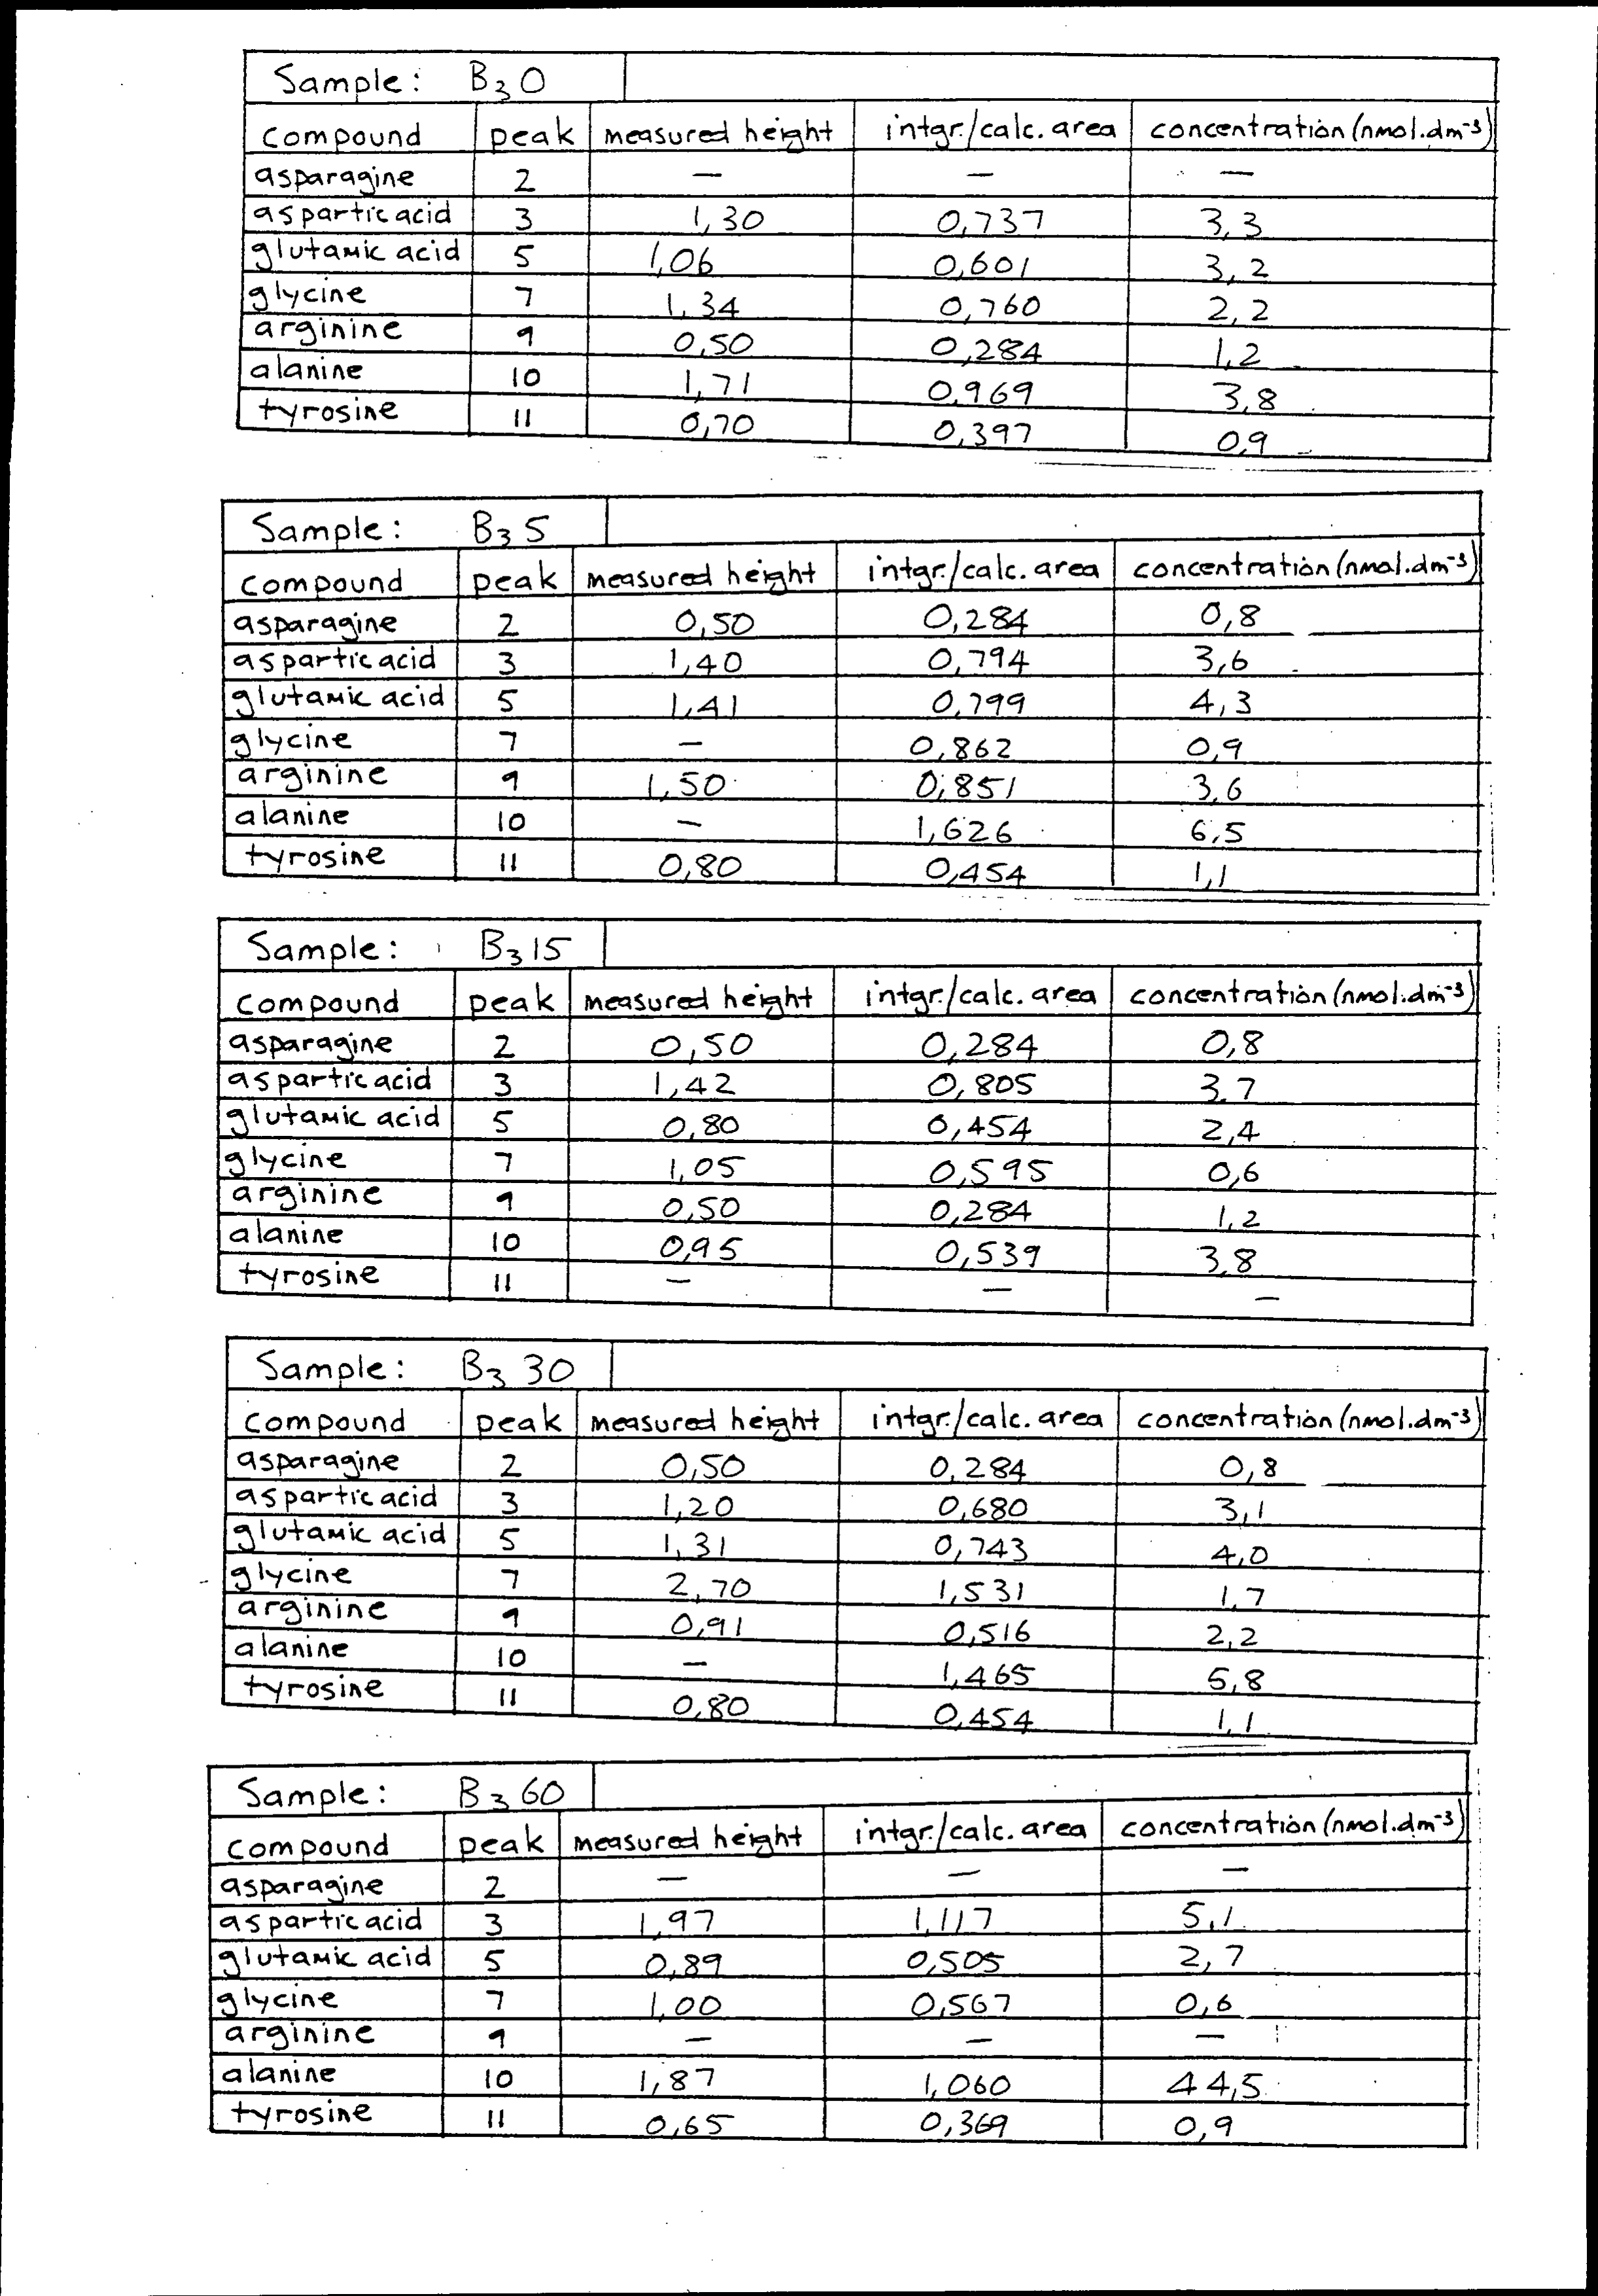 Sample: B₃0
compound peak measured height intgr./calc. area concentration (nmol.dm⁻³)
asparagine 2 – – –
aspartic acid 3 1,30 0,737 3,3
glutamic acid 5 1,06 0,601 3,2
glycine 7 1,34 0,760 2,2
arginine 9 0,50 0,284 1,2
alanine 10 1,71 0,969 3,8
tyrosine 11 0,70 0,397 0,9
Sample: B₃5
compound peak measured height intgr./calc. area concentration (nmol.dm⁻³)
asparagine 2 0,50 0,284 0,8
aspartic acid 3 1,40 0,794 3,6
glutamic acid 5 1,41 0,799 4,3
glycine 7 – 0,862 0,9
arginine 9 1,50 0,851 3,6
alanine 10 – 1,626 6,5
tyrosine 11 0,80 0,454 1,1
Sample: B₃15
compound peak measured height intgr./calc. area concentration (nmol.dm⁻³)
asparagine 2 0,50 0,284 0,8
aspartic acid 3 1,42 0,805 3,7
glutamic acid 5 0,80 0,454 2,4
glycine 7 1,05 0,595 0,6
arginine 9 0,50 0,284 1,2
alanine 10 0,95 0,539 3,8
tyrosine 11 – – –
Sample: B₃ 30
compound peak measured height intgr./calc. area concentration (nmol.dm⁻³)
asparagine 2 0,50 0,284 0,8
aspartic acid 3 1,20 0,680 3,1
glutamic acid 5 1,31 0,743 4,0
glycine 7 2,70 1,531 1,7
arginine 9 0,91 0,516 2,2
alanine 10 – 1,465 5,8
tyrosine 11 0,80 0,454 1,1
Sample: B₃ 60
compound peak measured height intgr./calc. area concentration (nmol.dm⁻³)
asparagine 2 – – –
aspartic acid 3 1,97 1,117 5,1
glutamic acid 5 0,89 0,505 2,7
glycine 7 1,00 0,567 0,6
arginine 9 – – –
alanine 10 1,87 1,060 44,5
tyrosine 11 0,65 0,369 0,9